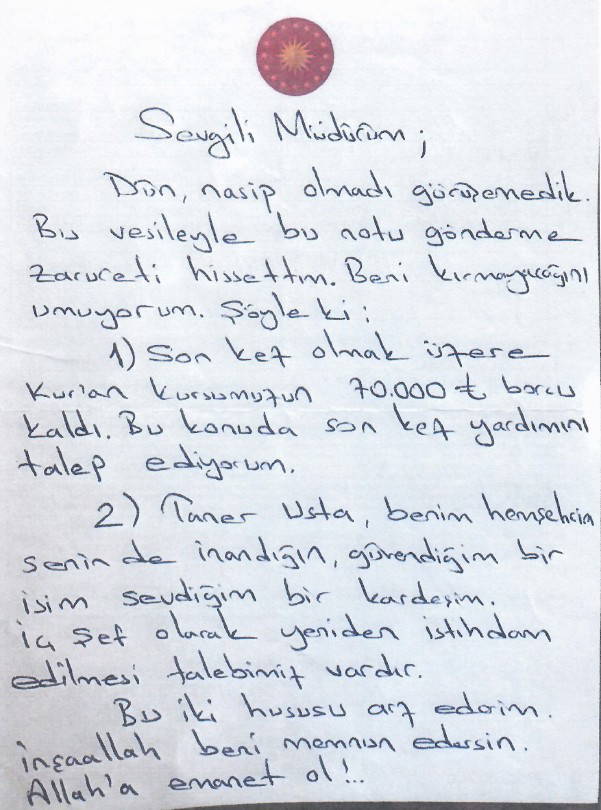 Sevgili Müdürüm;
Dün, nasip olmadı görüşemedik.
Bu vesileyle bu notu gönderme
zarureti hissettim. Beni kırmayacağını
umuyorum. Şöyle ki;
1) Son kez olmak üzere
Kur'an kursumuzun 70.000 ₺ borcu
kaldı. Bu konuda son kez yardımını
talep ediyorum.
2) Taner Usta, benim hemşehrim
senin de inandığın, güvendiğim bir
isim sevdiğim bir kardeşim.
İç Şef olarak yeniden istihdam
edilmesi talebimiz vardır.
Bu iki hususu arz ederim.
İnşaallah beni memnun edersin.
Allah'a emanet ol!..